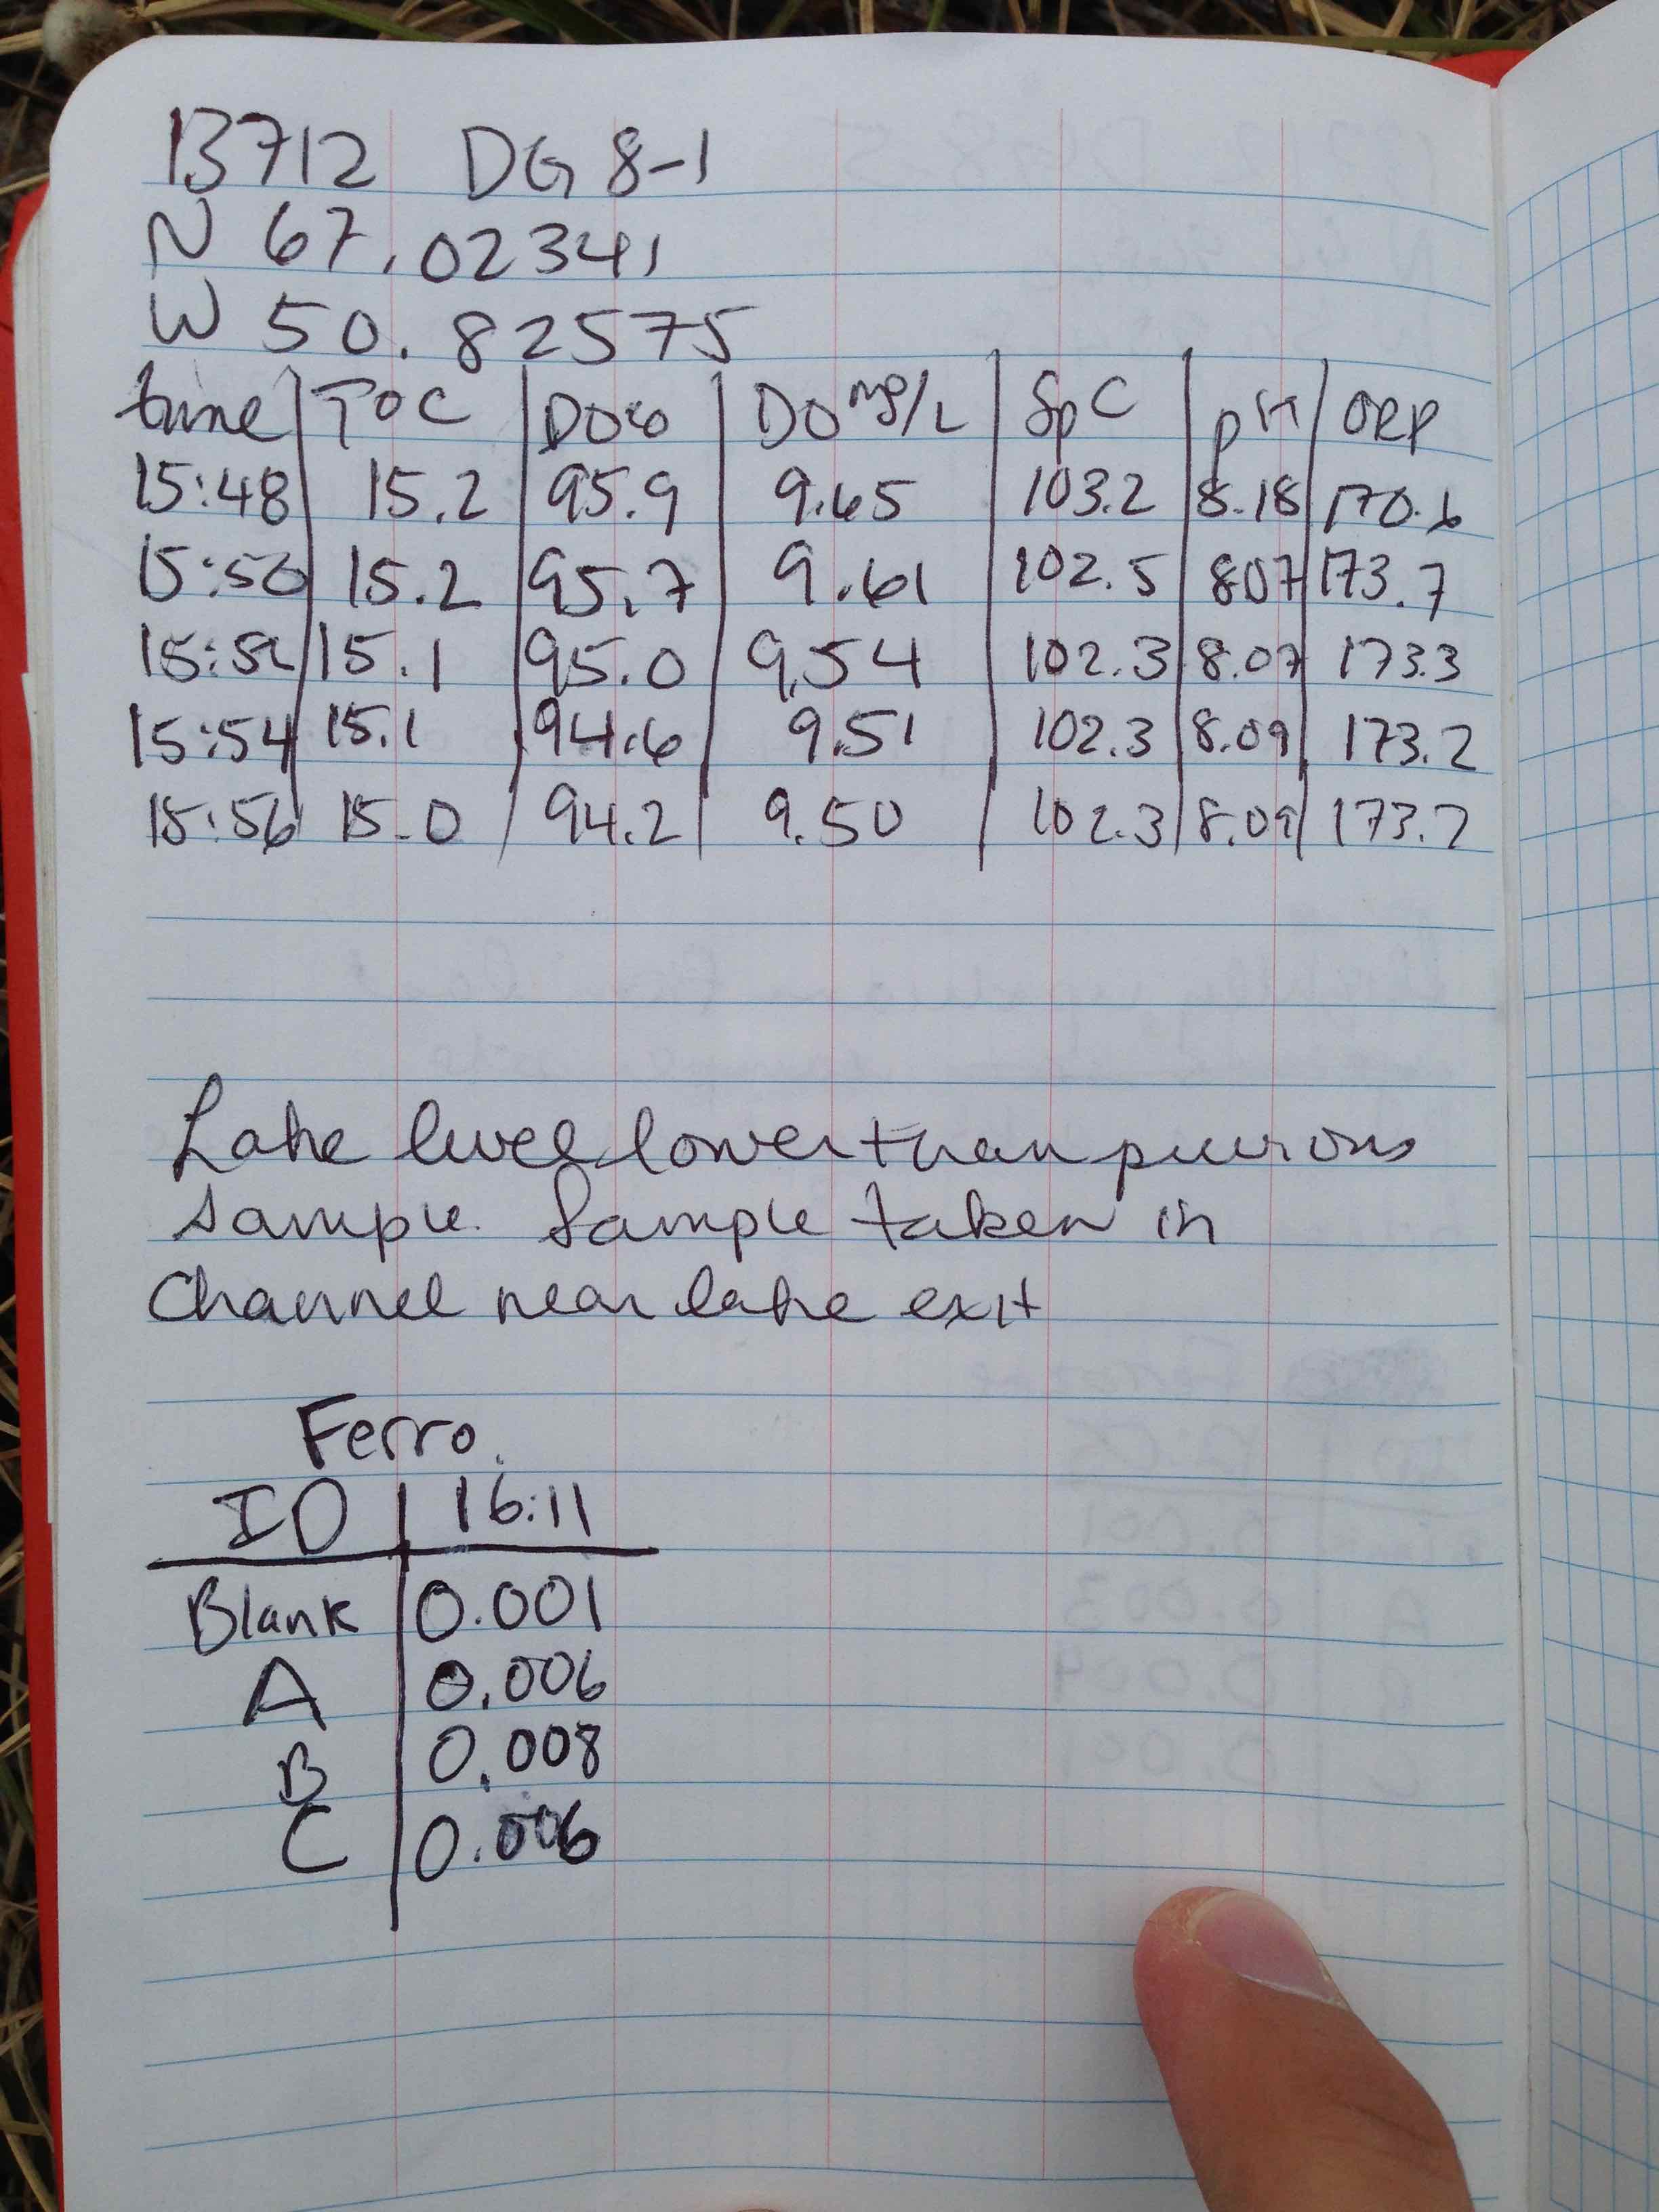 13712 DG 8-1
N 67.02341
W 50.82575
time TOC DO% DO mg/L SpC pH ORP
15:48 15.2 95.9 9.65 103.2 8.18 170.6
15:50 15.2 95.7 9.61 102.5 807 173.7
15:52 15.1 95.0 9.54 102.3 8.07 173.3
15:54 15.1 94.6 9.51 102.3 8.09 173.2
15:56 15.0 94.2 9.50 102.3 8.09 173.2
Lake level lower than previous
sample. Sample taken in
Channel near lake exit
Ferro.
ID 16:11
Blank 0.001
A 0.006
B 0.008
C 0.006